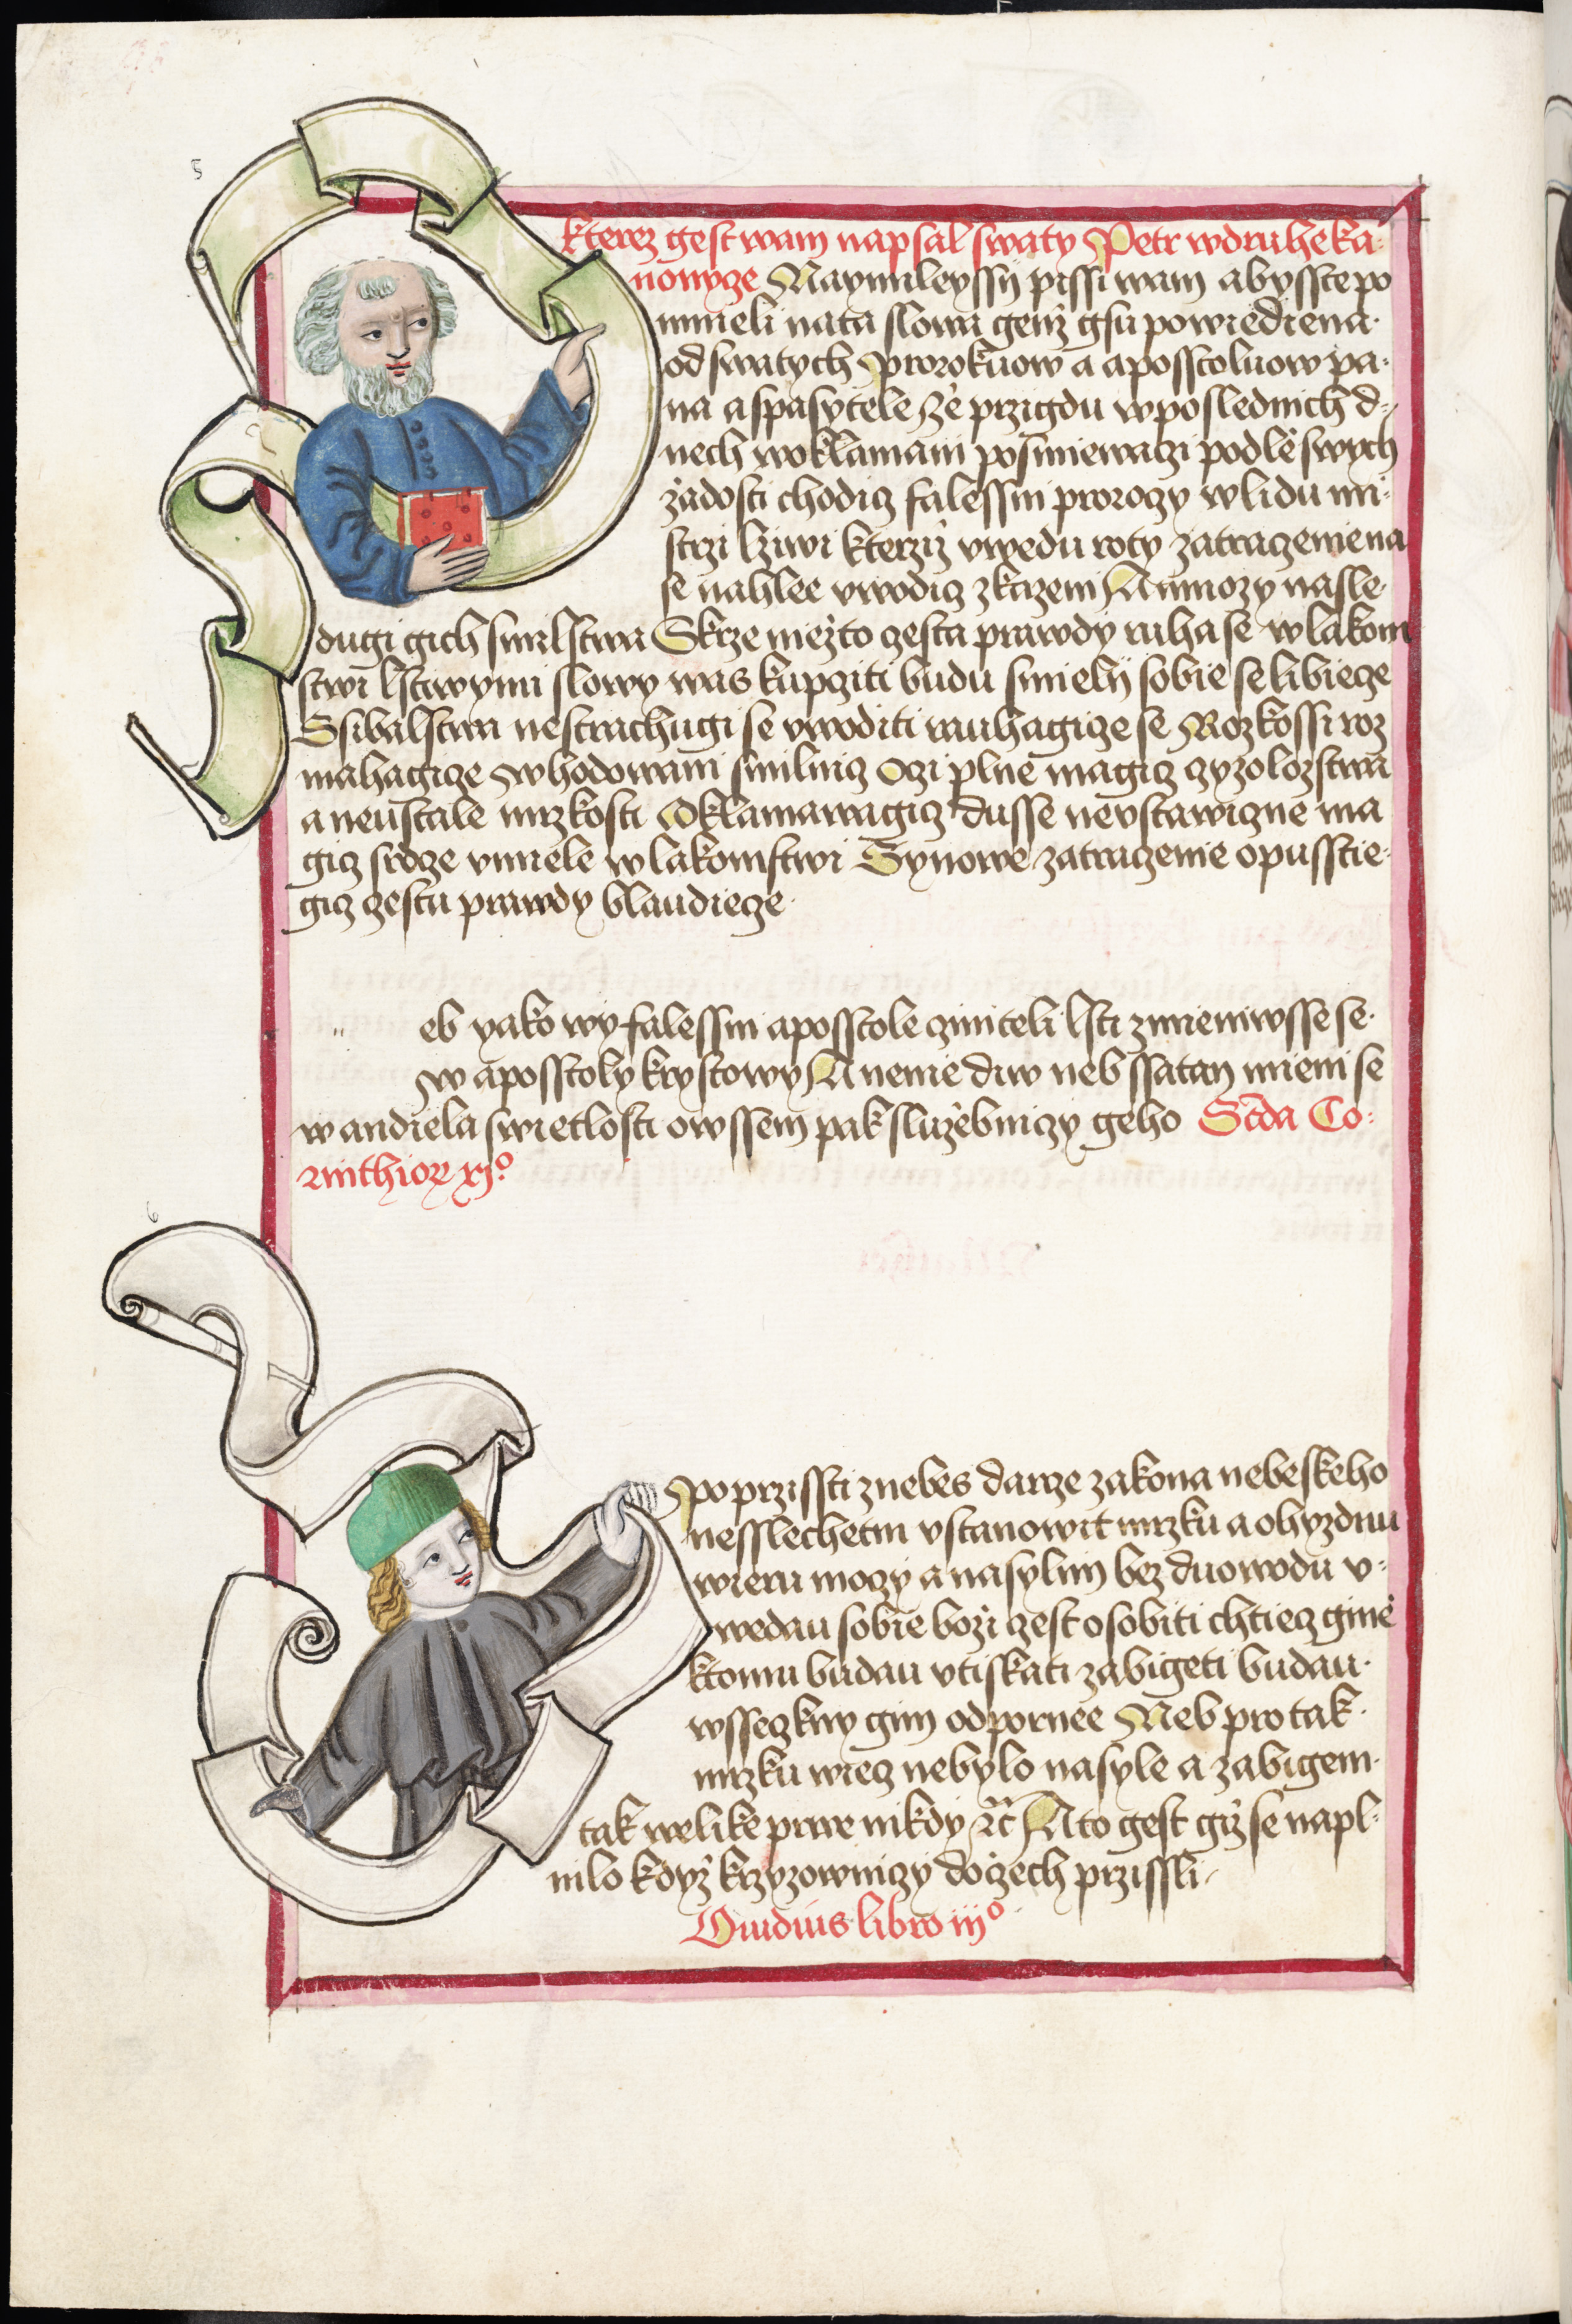 5
kterez gest wam napsal swaty Petr wdruhe ka-
nonyge Naymileyssij pissi wam abysste po
mnieli nata slowa genz gsu powiediena
od swatych Prorokuow a aposstoluow pa-
na aspasytele Ze przigdu wposlednich d-
nech woklamani posmiewagi podle swych
zadosti chodig falessni prorogy wlidu mi-
strzi lziwi kterziz vwedu roty zatragenie na
se nahlee vwodig zkazeni A mnozy nasle-
dugi gich smilstwa Skrze niezto gesta prawdy ruha se wlakom
stwi lstiwymi slowy was kupgiti budu smielij sobie se libiege
Ssibalstwa nestrachugi se vwoditi ruuhagige se Rozkossi roz
mahagige whodowani smilnig Ogi plne magig gyzolozstwa
a neustale mrzkosti Oklamawagig dusse neustawigne ma
gig srdge vmiele wlakomstwi Synowe zatragenie opusstie-
gig gestu prawdy blaudiege
eb yako wy falessni aposstole giniteli lsti zmieniwsse se
w aposstoly krystowy A nenie diw neb ssatan mieni se
w andiela swietlosti owssem pak sluzebnigy geho Scda Co-
rinthior xjº
6
Po przissti znebes darze zakona nebeskeho
nesslechetni vstanowit mrzku a ohyzdnu
wieru mogy a nasylim bez duowodu v-
wedau sobie bozi gest osobiti chtieg gine
ktomu budau vtiskati zabigeti budau
wssegkny gim odpornee Neb pro tak
mrzku wieg nebylo nasyle a zabigem
tak welike prwe nikdy ꝛc̃ A to gest giz se napl-
nilo kdyz krzyzownigy do gech przissli
Ouidius libro iijº